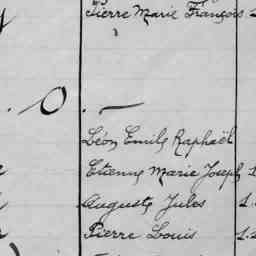 Pierre Marie François
O.
Léon Emile Raphaël
Etienne Marie Joseph 1
Auguste Jules 1.
Pierre Louis 1.